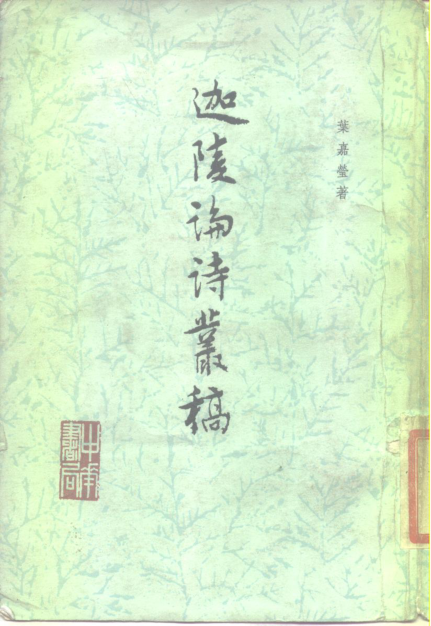 葉嘉瑩著
迦陵论诗叢稿
中華書局